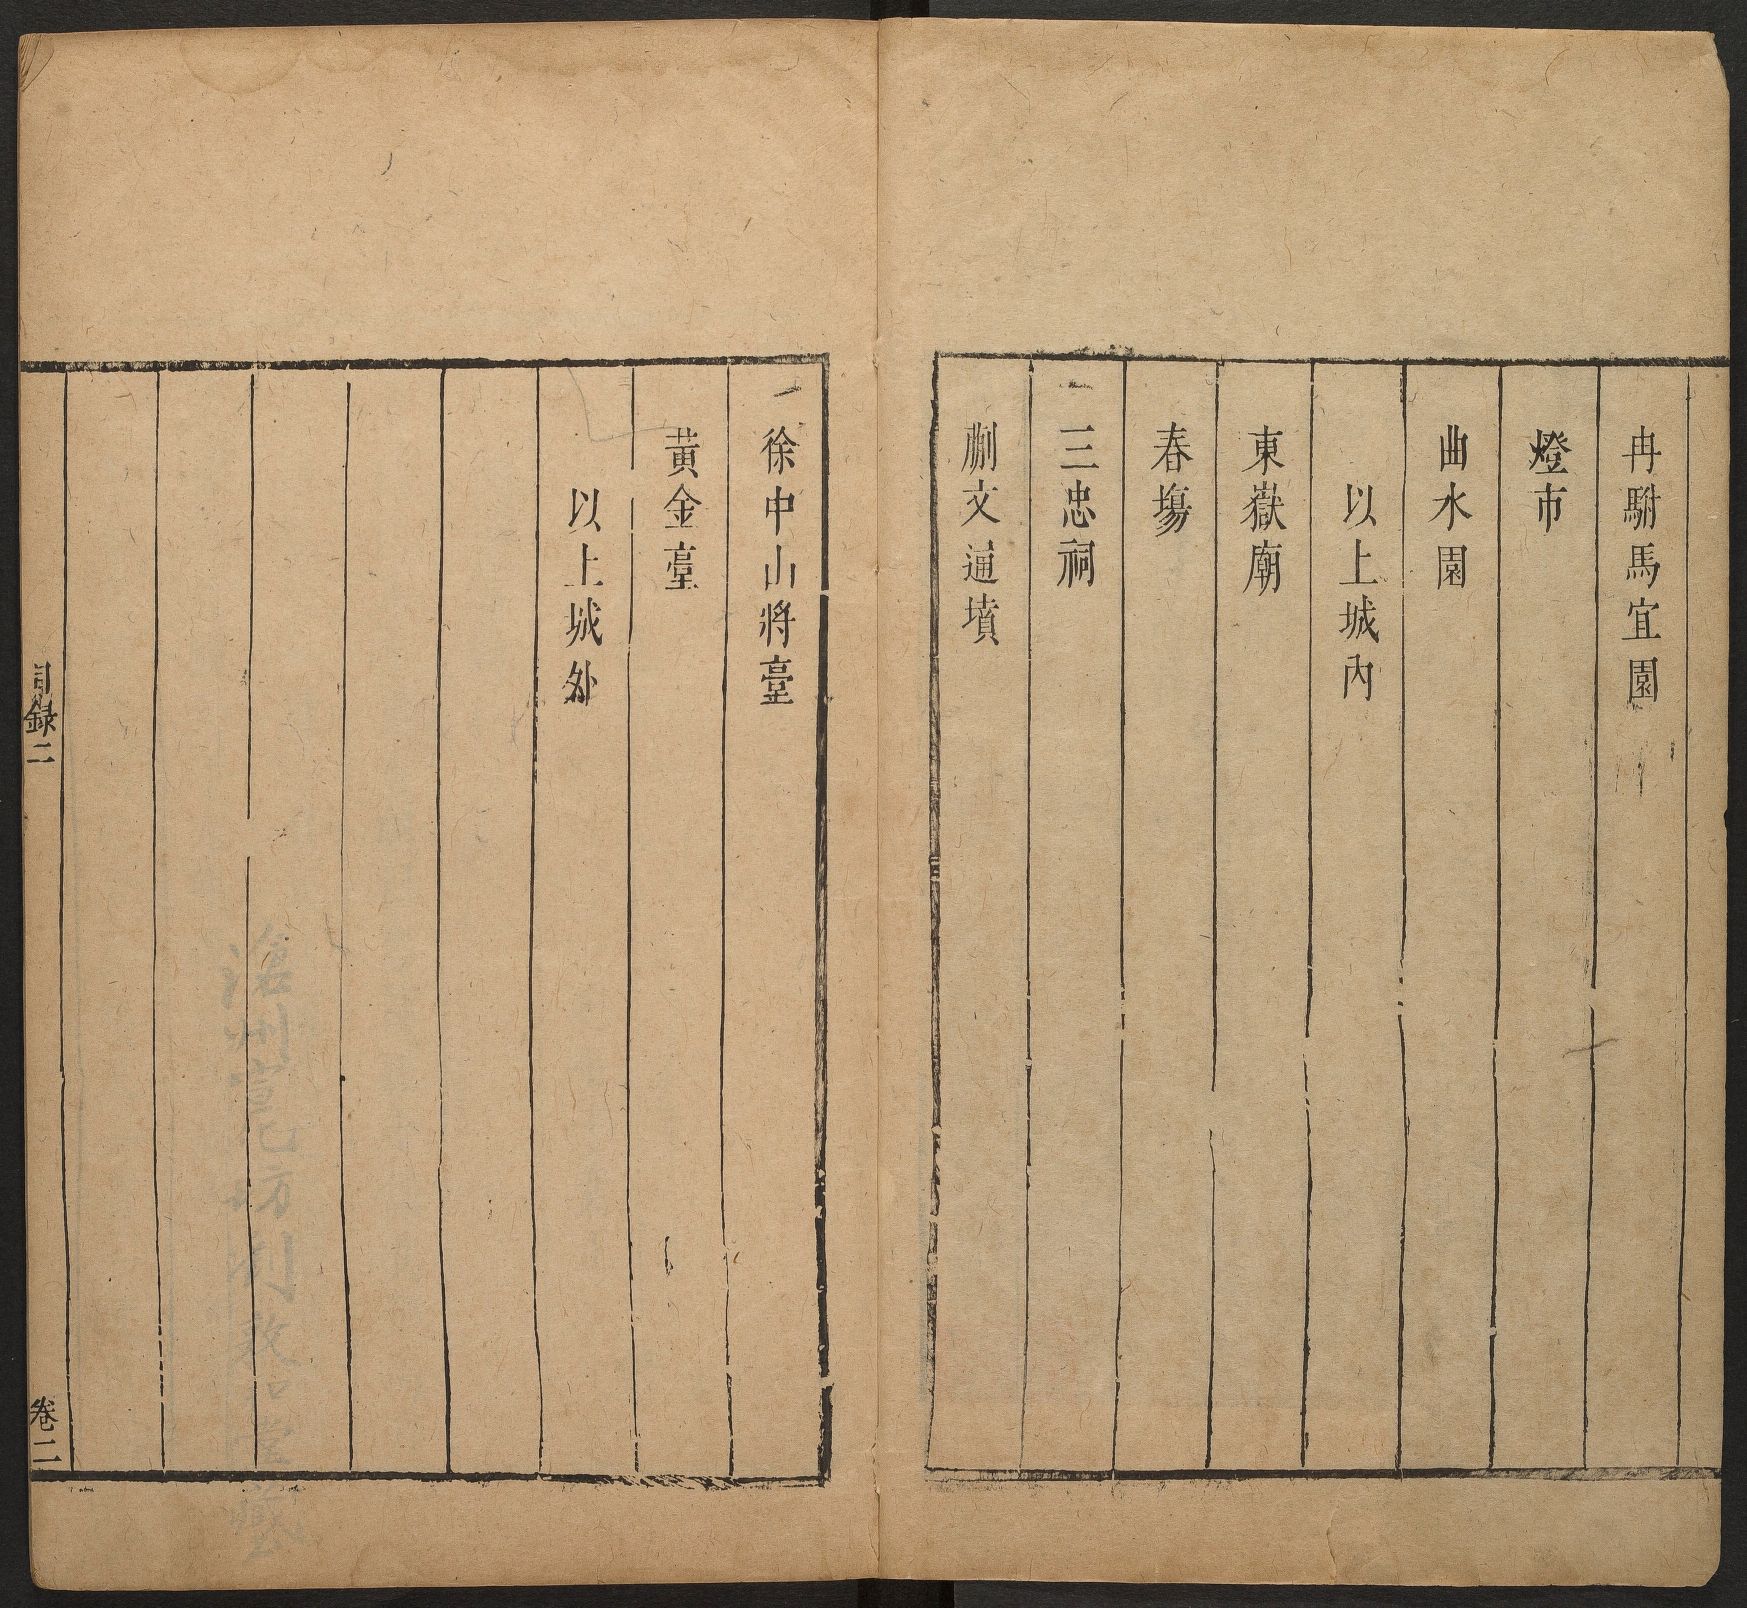 冉駙馬宜園
燈市
曲水園
以上城內
東嶽廟
春塲
三忠祠
蒯文通墳
徐中山將臺
黃金臺
以上城外
目錄二
卷二